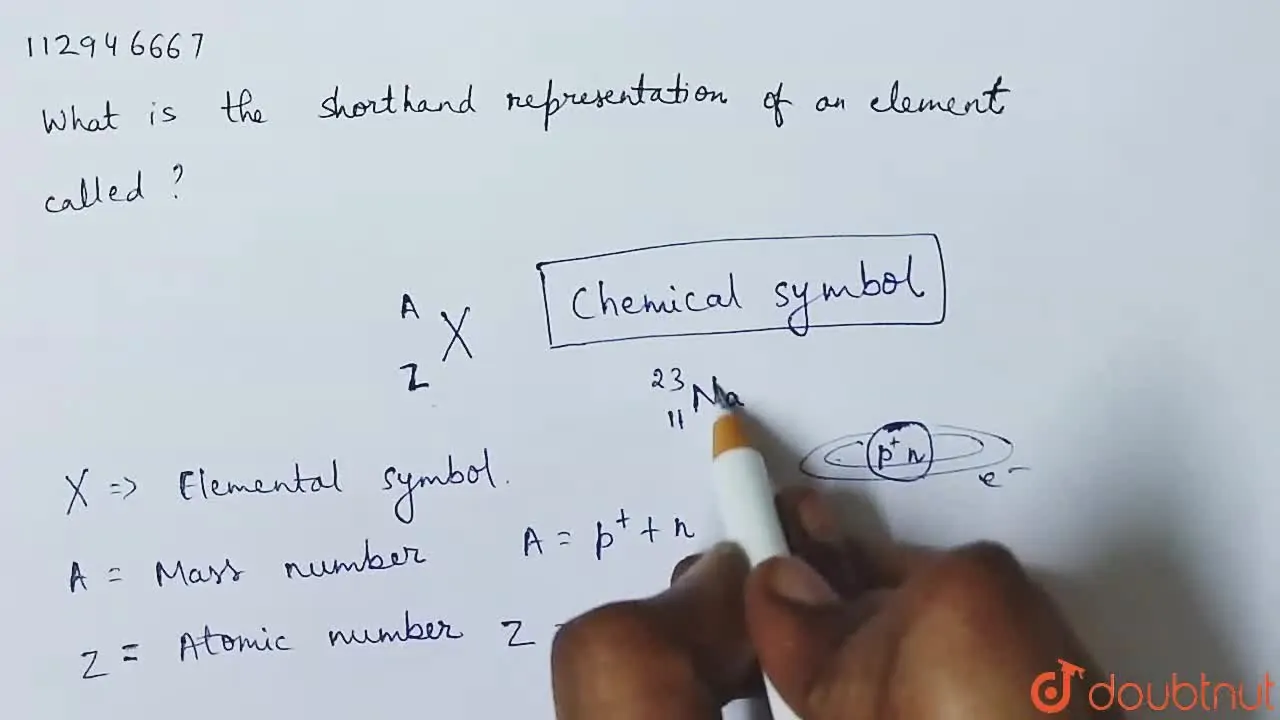 112946667
What is the shorthand representation of an element
called ?
A
X
Z
Chemical symbol
23
Na
11
p+ n
e-
X => Elemental symbol.
A = Mass number A = p+ + n
Z = Atomic number Z =
doubtnut